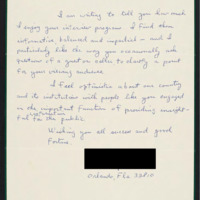 I am writing to tell you how much
I enjoy your interview program. I find them
informative, balanced and impartial - and I
particularly like the way you occasionally ask
questions of a guest or caller to clarify a point
for your viewing audience.
I feel optimistic about our country
and its institutions with people like you engaged
in the important function of providing
information
to the public.
Wishing you all success and good
fortune.
Orlando, Fla